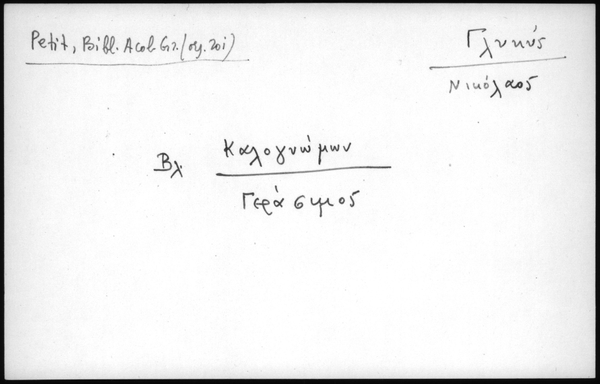 Petit, Bibl. Acol. Gr. (σχ. 201)
Γλυκύς
Νικόλαος
Βλ. Καλογνώμων
Γεράσιμος